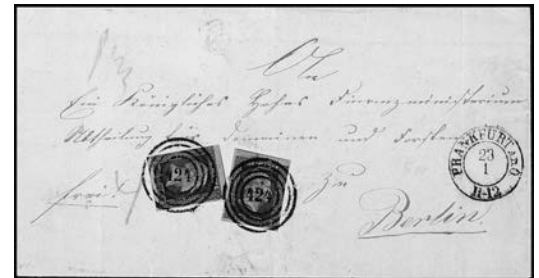 An
Ein Königliches Hohes Finanzministerium
Abtheilung für Domainen und Forsten
frei!
424
424
zu
Berlin.
FRANKFURT a.O.
23
1
11-12